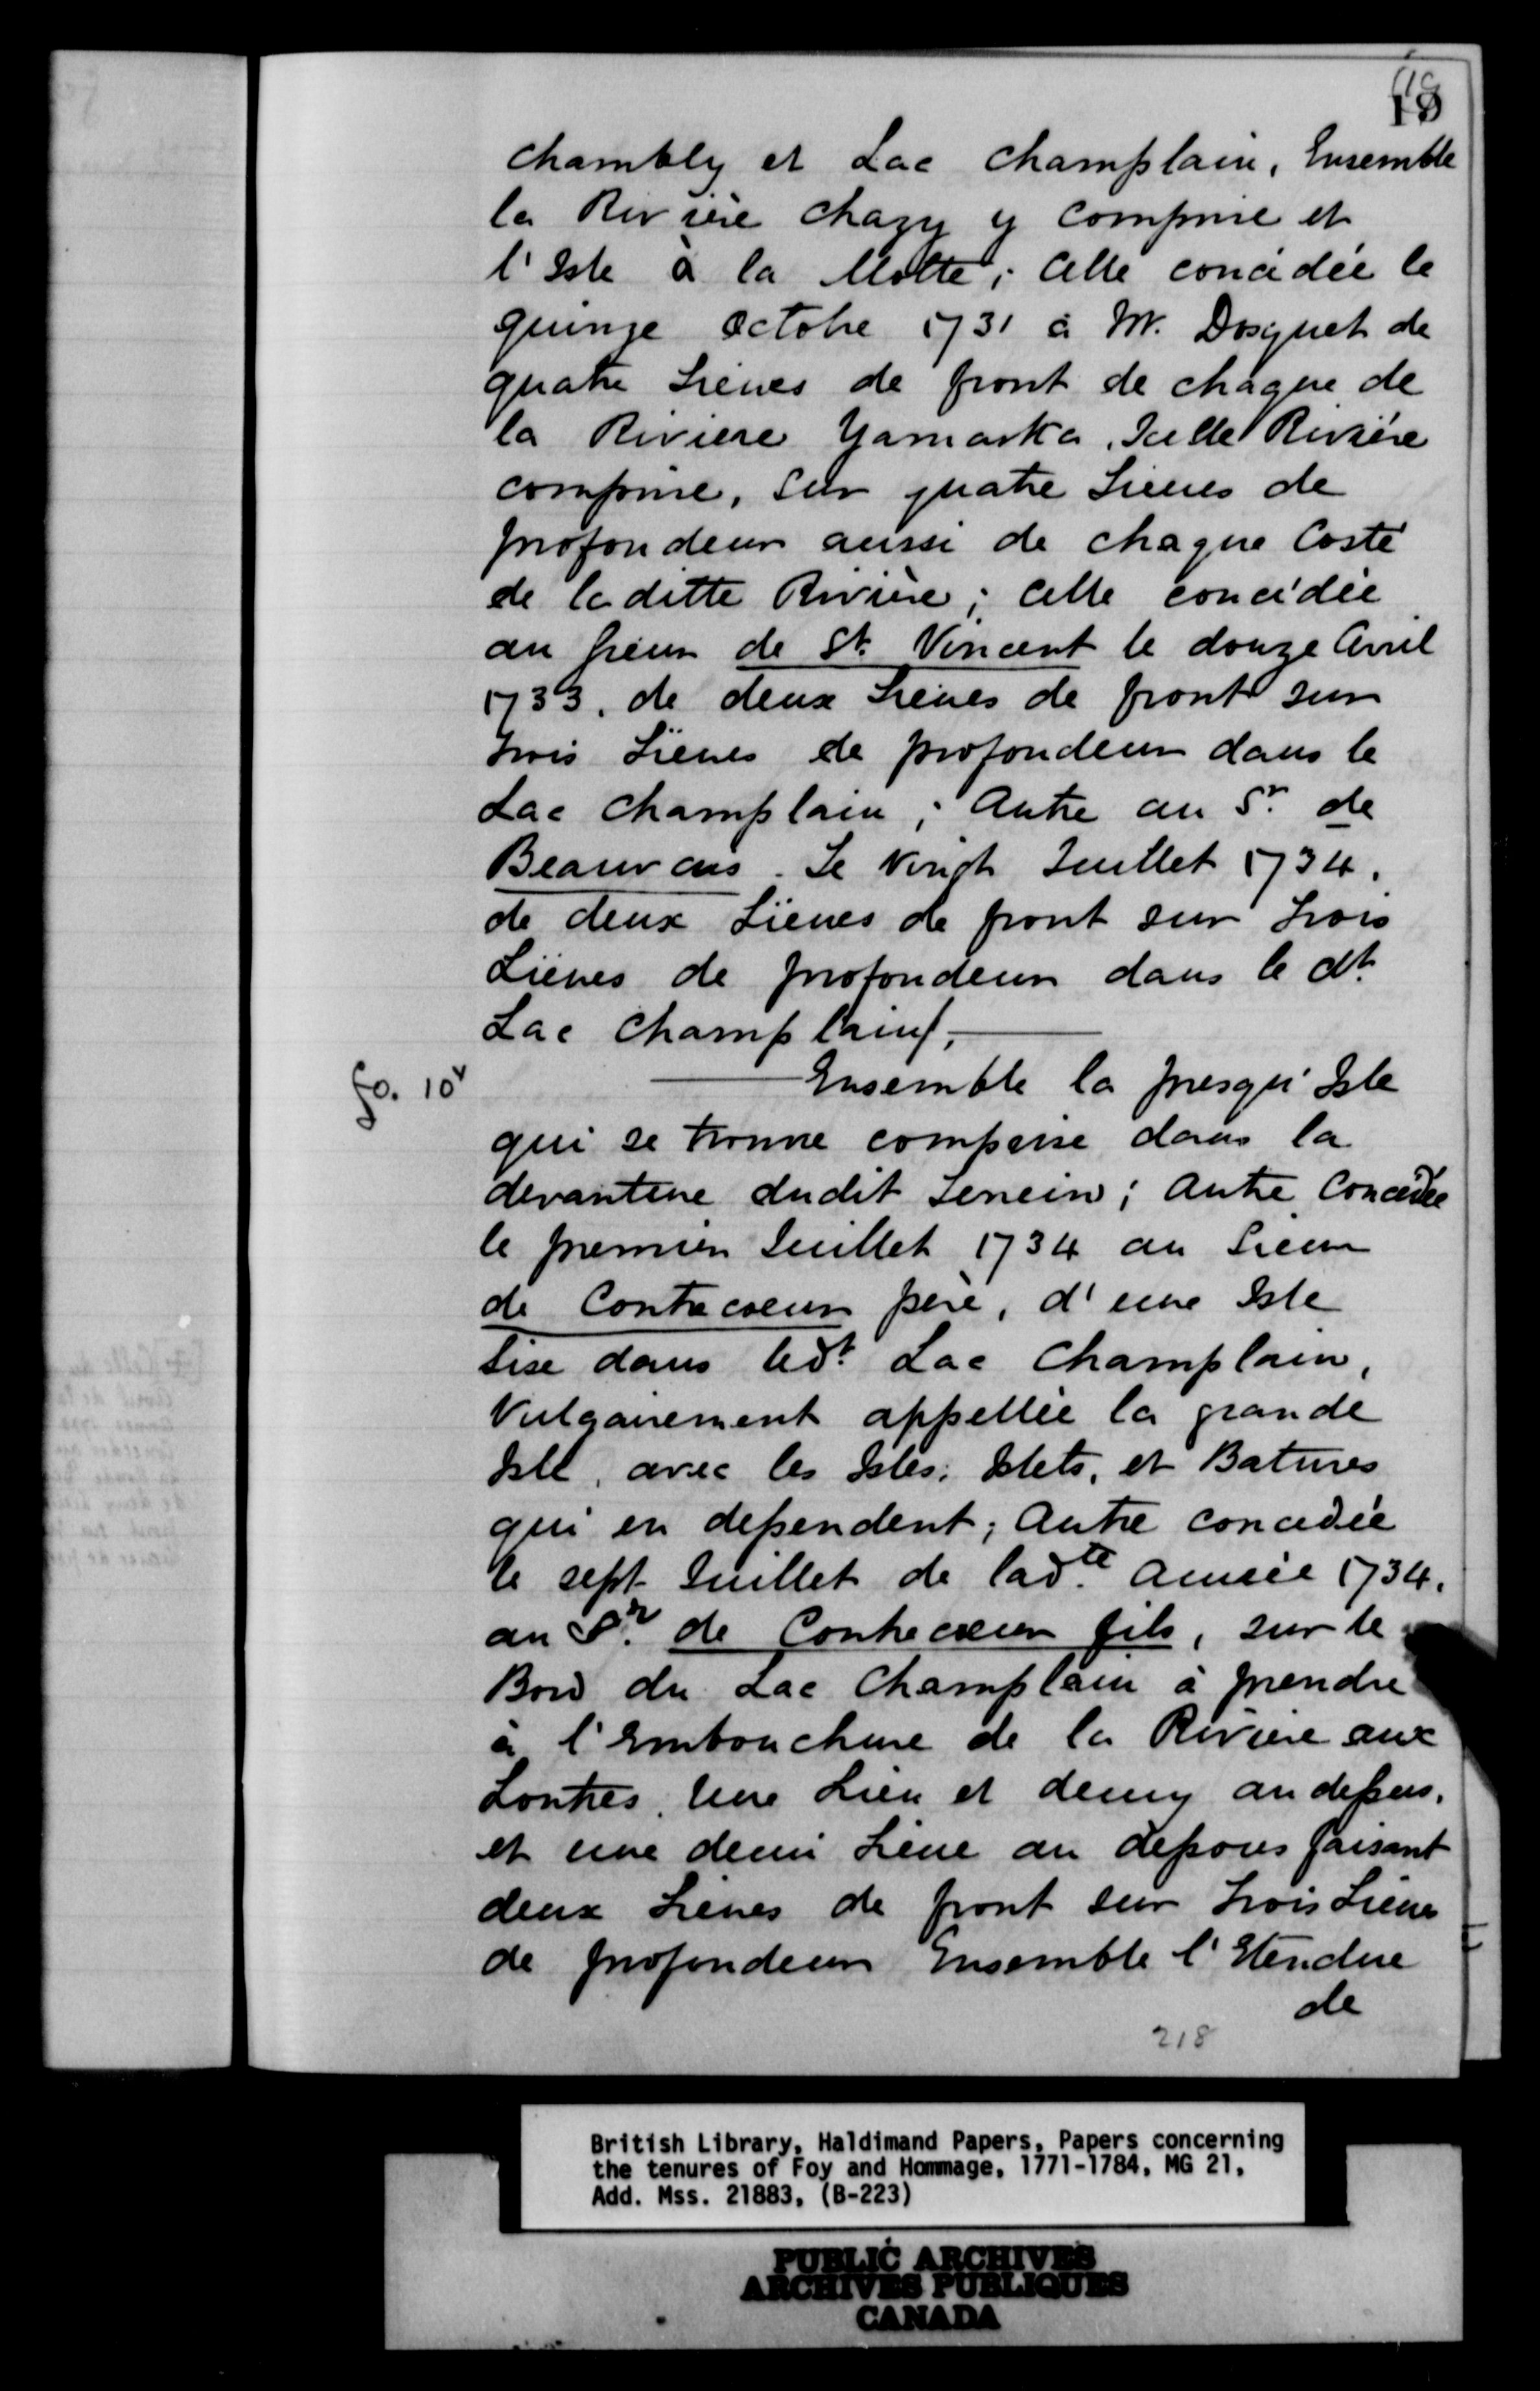 19
chambly et Lac champlain, Ensemble
la Riviere chazy y comprise et
l'Isle à la Motte; Celle concédée le
quinze Octobre 1731 à Mr. Dosquet de
quatre Lieues de front de chaque de
la Riviere Yamaska, Icelle Rivière
comprise, sur quatre Lieues de
profondeur aussi de chaque Costé
de laditte Rivière; celle concédée
au sieur de St. Vincent le douze Avril
1733, de deux Lieues de front sur
trois Lieues de profondeur dans le
Lac champlain; Autre au Sr. de
Beauvais. Le Vingt Juillet 1734.
de deux Lieues de front sur trois
Lieues de profondeur dans le dt.
Lac champlain,
fo. 10v
Ensemble la presqu'Isle
qui se trouve comprise dans la
devanture dudit Terrein; Autre Concedée
le premier Juillet 1734 au Sieur
de Contrecoeur père, d'une Isle
sise dans led.t Lac Champlain,
Vulgairement appellée la grande
Isle, avec les Isles, Islets, et Batures
qui en dependent; Autre concedée
le sept Juillet de lad.te année 1734.
au Sr. de Contrecoeur fils, sur le
Bord du Lac Champlain à prendre
à l'Embouchure de la Riviere aux
Loutres, Une Lieu et demy au depus,
et une demi Lieue au depous faisant
deux Lieues de front sur trois Lieues
de profondeur Ensemble l'Etendue
de
218
British Library, Haldimand Papers, Papers concerning
the tenures of Foy and Hommage, 1771-1784, MG 21,
Add. Mss. 21883, (B-223)
PUBLIC ARCHIVES
ARCHIVES PUBLIQUES
CANADA